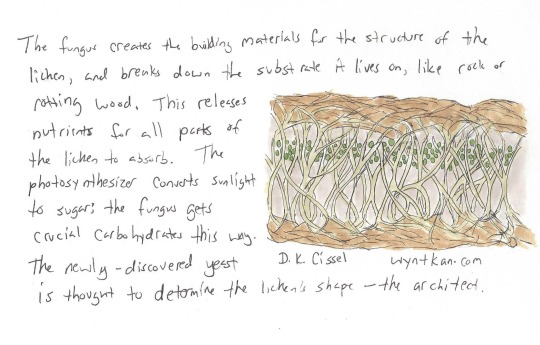 The fungus creates the building materials for the structure of the
lichen, and breaks down the substrate it lives on, like rock or
rotting wood. This releases
nutrients for all parts of
the lichen to absorb. The
photosynthesizer converts sunlight
to sugar; the fungus gets
crucial carbohydrates this way.
The newly-discovered yeast
is thought to detomine the lichen's shape – the architect.
D. K. Cissel
wyntkan.com